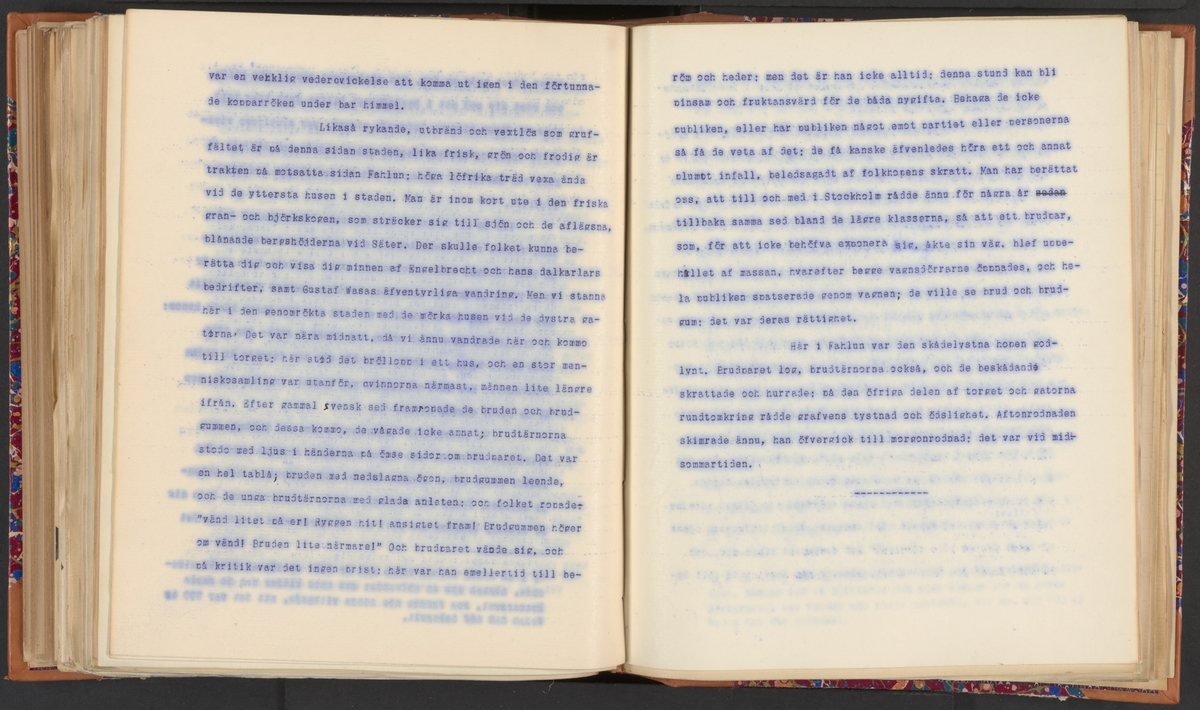 var en veklig vedervickelse att komma ut igen i den förtunna-
de kopparröken under bar himmel.
Likaså rykande, utbränd och vextlös som gruf-
fältet är på denna sidan staden, lika frisk, grön och frodig är
trakten på motsatta sidan Fahlun; höga löfrika träd vexa ända
vid de yttersta husen i staden. Man är inom kort ute i den friska
gran- och björkskogen, som sträcker sig till sjön och de aflägsna,
blånande bergshöjderna vid Säter. Der skulle folket kunna be-
rätta dig och visa dig minnen af Engelbrecht och hans dalkarlars
bedrifter, samt Gustaf Wasas äfventyrliga vandring. Men vi stanna
här i den genomrökta staden med de mörka husen vid de dystra ga-
torna. Det var nära midnatt, då vi ännu vandrade här och kommo
till torget; här stod det bröllopp i ett hus, och en stor men-
niskosamling var utanför, qvinnorna närmast, männen lite längre
ifrån. Efter gammal svensk sed framropade de bruden och brud-
gummen, och dessa kommo, de vågade icke annat; brudtärnorna
stodo med ljus i händerna på ömse sidor om brudparet. Det var
en hel tablå; bruden med nedslagna ögon, brudgummen leende,
och de unga brudtärnorna med glada anleten; och folket ropade:
"vänd litet på er! Ryggen hit! ansigtet fram! Brudgummen höger
om vänd! Bruden lite närmare!" Och brudparet vände sig, och
på kritik var det ingen brist; här var han emellertid till be-
röm och heder; men det är han icke alltid; denna stund kan bli
pinsam och fruktansvärd för de båda nygifta. Behaga de icke
publiken, eller har publiken något emot partiet eller personerna
så få de veta af det; de få kanske äfvenledes höra ett och annat
plumpt infall, beledsagadt af folkhopens skratt. Man har berättat
oss, att till och med i Stockholm rådde ännu för några år sedan
tillbaka samma sed bland de lägre klasserna, så att ett brudpar,
som, för att icke behöfva exponera sig, åkte sin väg, blef uppe-
hållet af massan, hvarefter begge vagnsdörrarne öppnades, och he-
la publiken spatserade genom vagnen; de ville se brud och brud-
gum; det var deras rättighet.
Här i Fahlun var den skådelystna hopen god-
lynt. Brudparet log, brudtärnorna också, och de beskådande
skrattade och hurrade; på den öfriga delen af torget och gatorna
rundtomkring rådde grafvens tystnad och ödslighet. Aftonrodnaden
skimrade ännu, han öfvergick till morgonrodnad; det var vid mid-
sommartiden.
------------